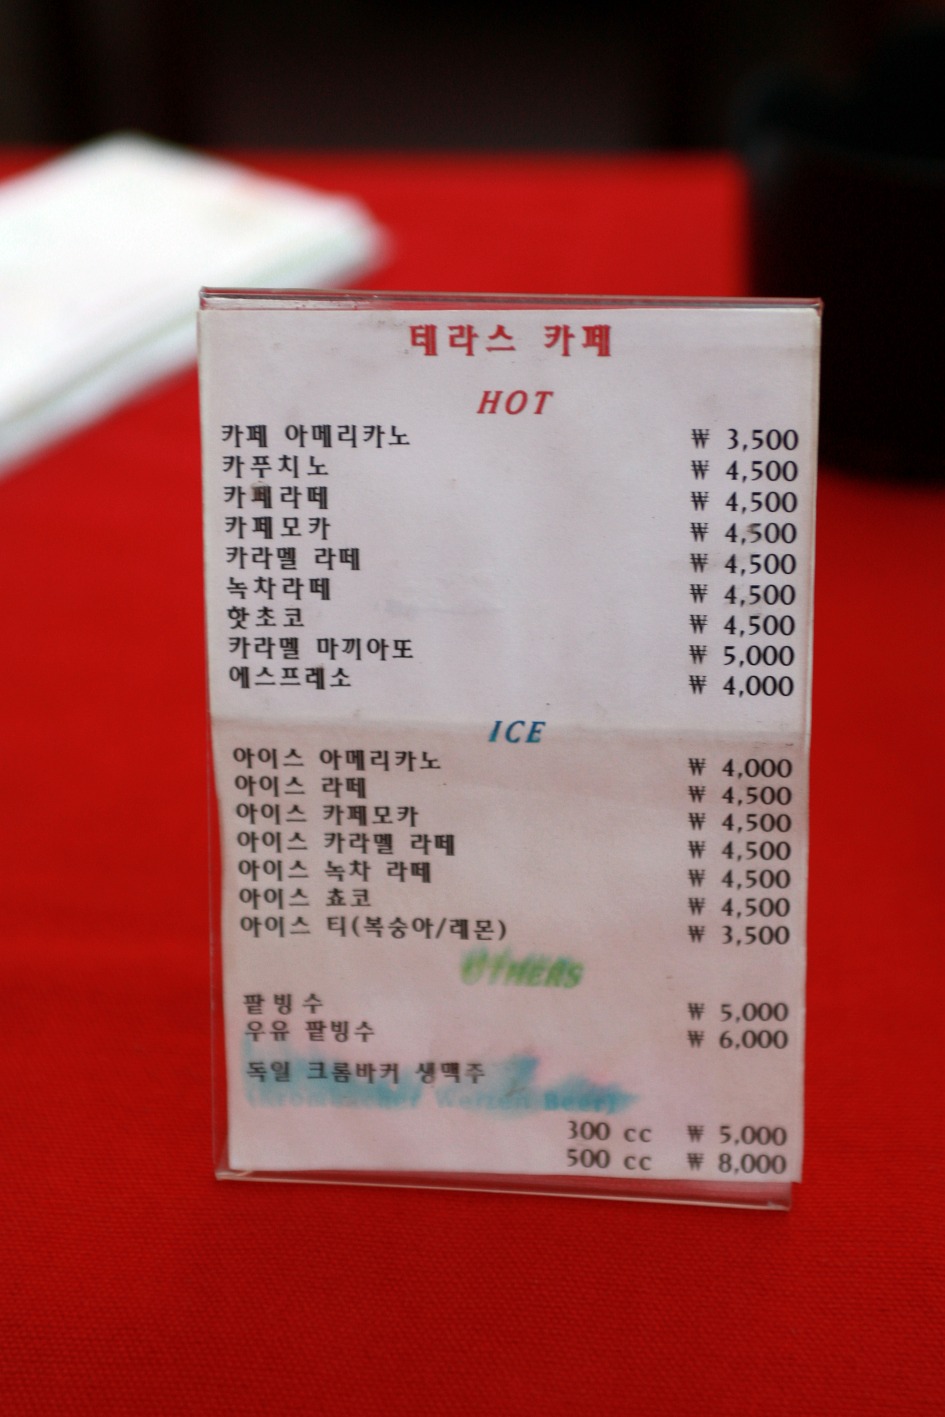 테라스 카페
HOT
카페 아메리카노 ₩ 3,500
카푸치노 ₩ 4,500
카페라떼 ₩ 4,500
카페모카 ₩ 4,500
카라멜 라떼 ₩ 4,500
녹차라떼 ₩ 4,500
핫초코 ₩ 4,500
카라멜 마끼아또 ₩ 5,000
에스프레소 ₩ 4,000
ICE
아이스 아메리카노 ₩ 4,000
아이스 라떼 ₩ 4,500
아이스 카페모카 ₩ 4,500
아이스 카라멜 라떼 ₩ 4,500
아이스 녹차 라떼 ₩ 4,500
아이스 쵸코 ₩ 4,500
아이스 티(복숭아/레몬) ₩ 3,500
OTHERS
팥빙수 ₩ 5,000
우유 팥빙수 ₩ 6,000
독일 크롬바커 생맥주
(Krombacher Weizen Beer)
300 cc ₩ 5,000
500 cc ₩ 8,000